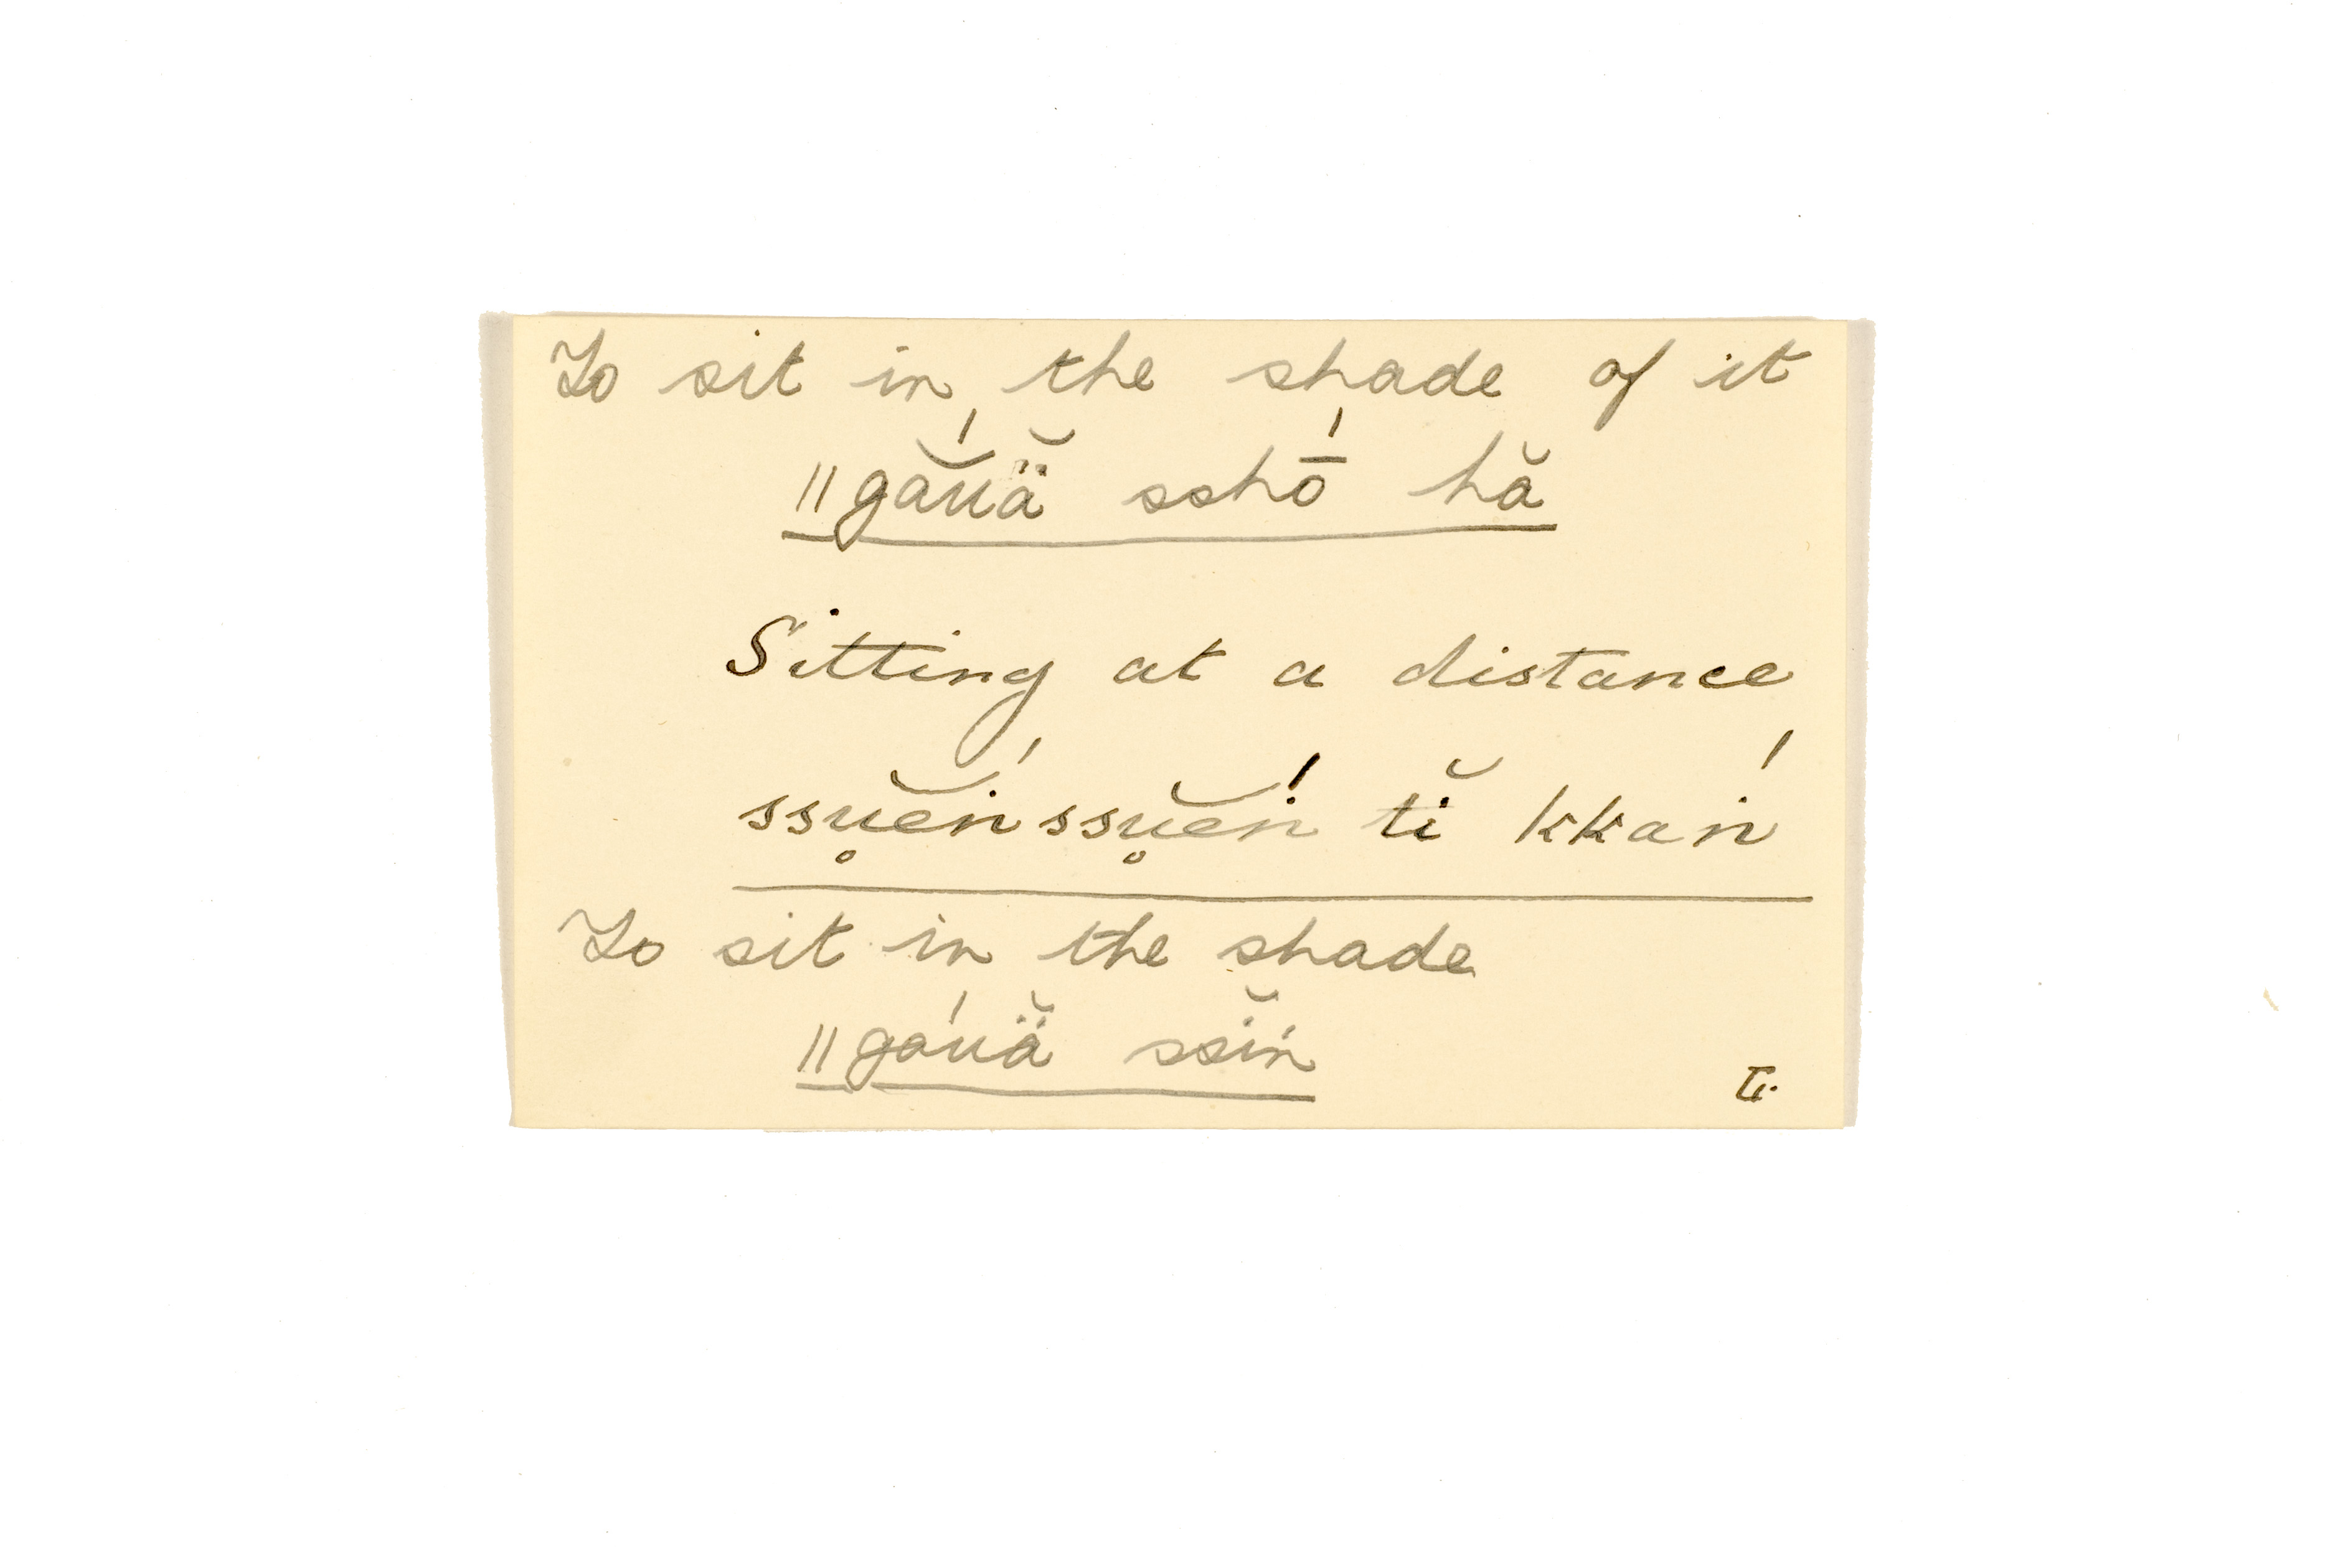 To sit in the shade of it
ǁgá͝uä̆ sshṓ hă
Sitting at a distance
ssu̥͝éṅ ssu̥͝éṅ tĭ kkáṅ
To sit in the shade
ǁgáuä̆ ssĭṅ